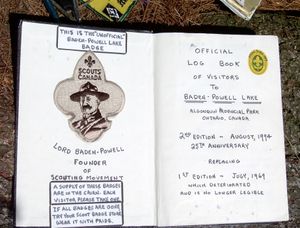 THIS IS THE "UNOFFICIAL"
BADEN-POWELL LAKE
BADGE
SCOUTS
CANADA
LORD BADEN-POWELL
FOUNDER
OF
SCOUTING MOVEMENT
A SUPPLY OF THESE BADGES
ARE IN THE CAIRN. EACH
VISITOR PLEASE TAKE ONE.
IF ALL BADGES ARE GONE
TRY YOUR SCOUT BADGE STORE
WEAR IT WITH PRIDE.
OFFICIAL
LOG BOOK
OF VISITORS
TO
BADEN-POWELL LAKE
ALGONQUIN PROVINCIAL PARK
ONTARIO, CANADA
2ND EDITION - AUGUST, 1994
25TH ANNIVERSARY
REPLACING
1ST EDITION - JULY, 1969
WHICH DETERIORATED
AND IS NO LONGER LEGIBLE